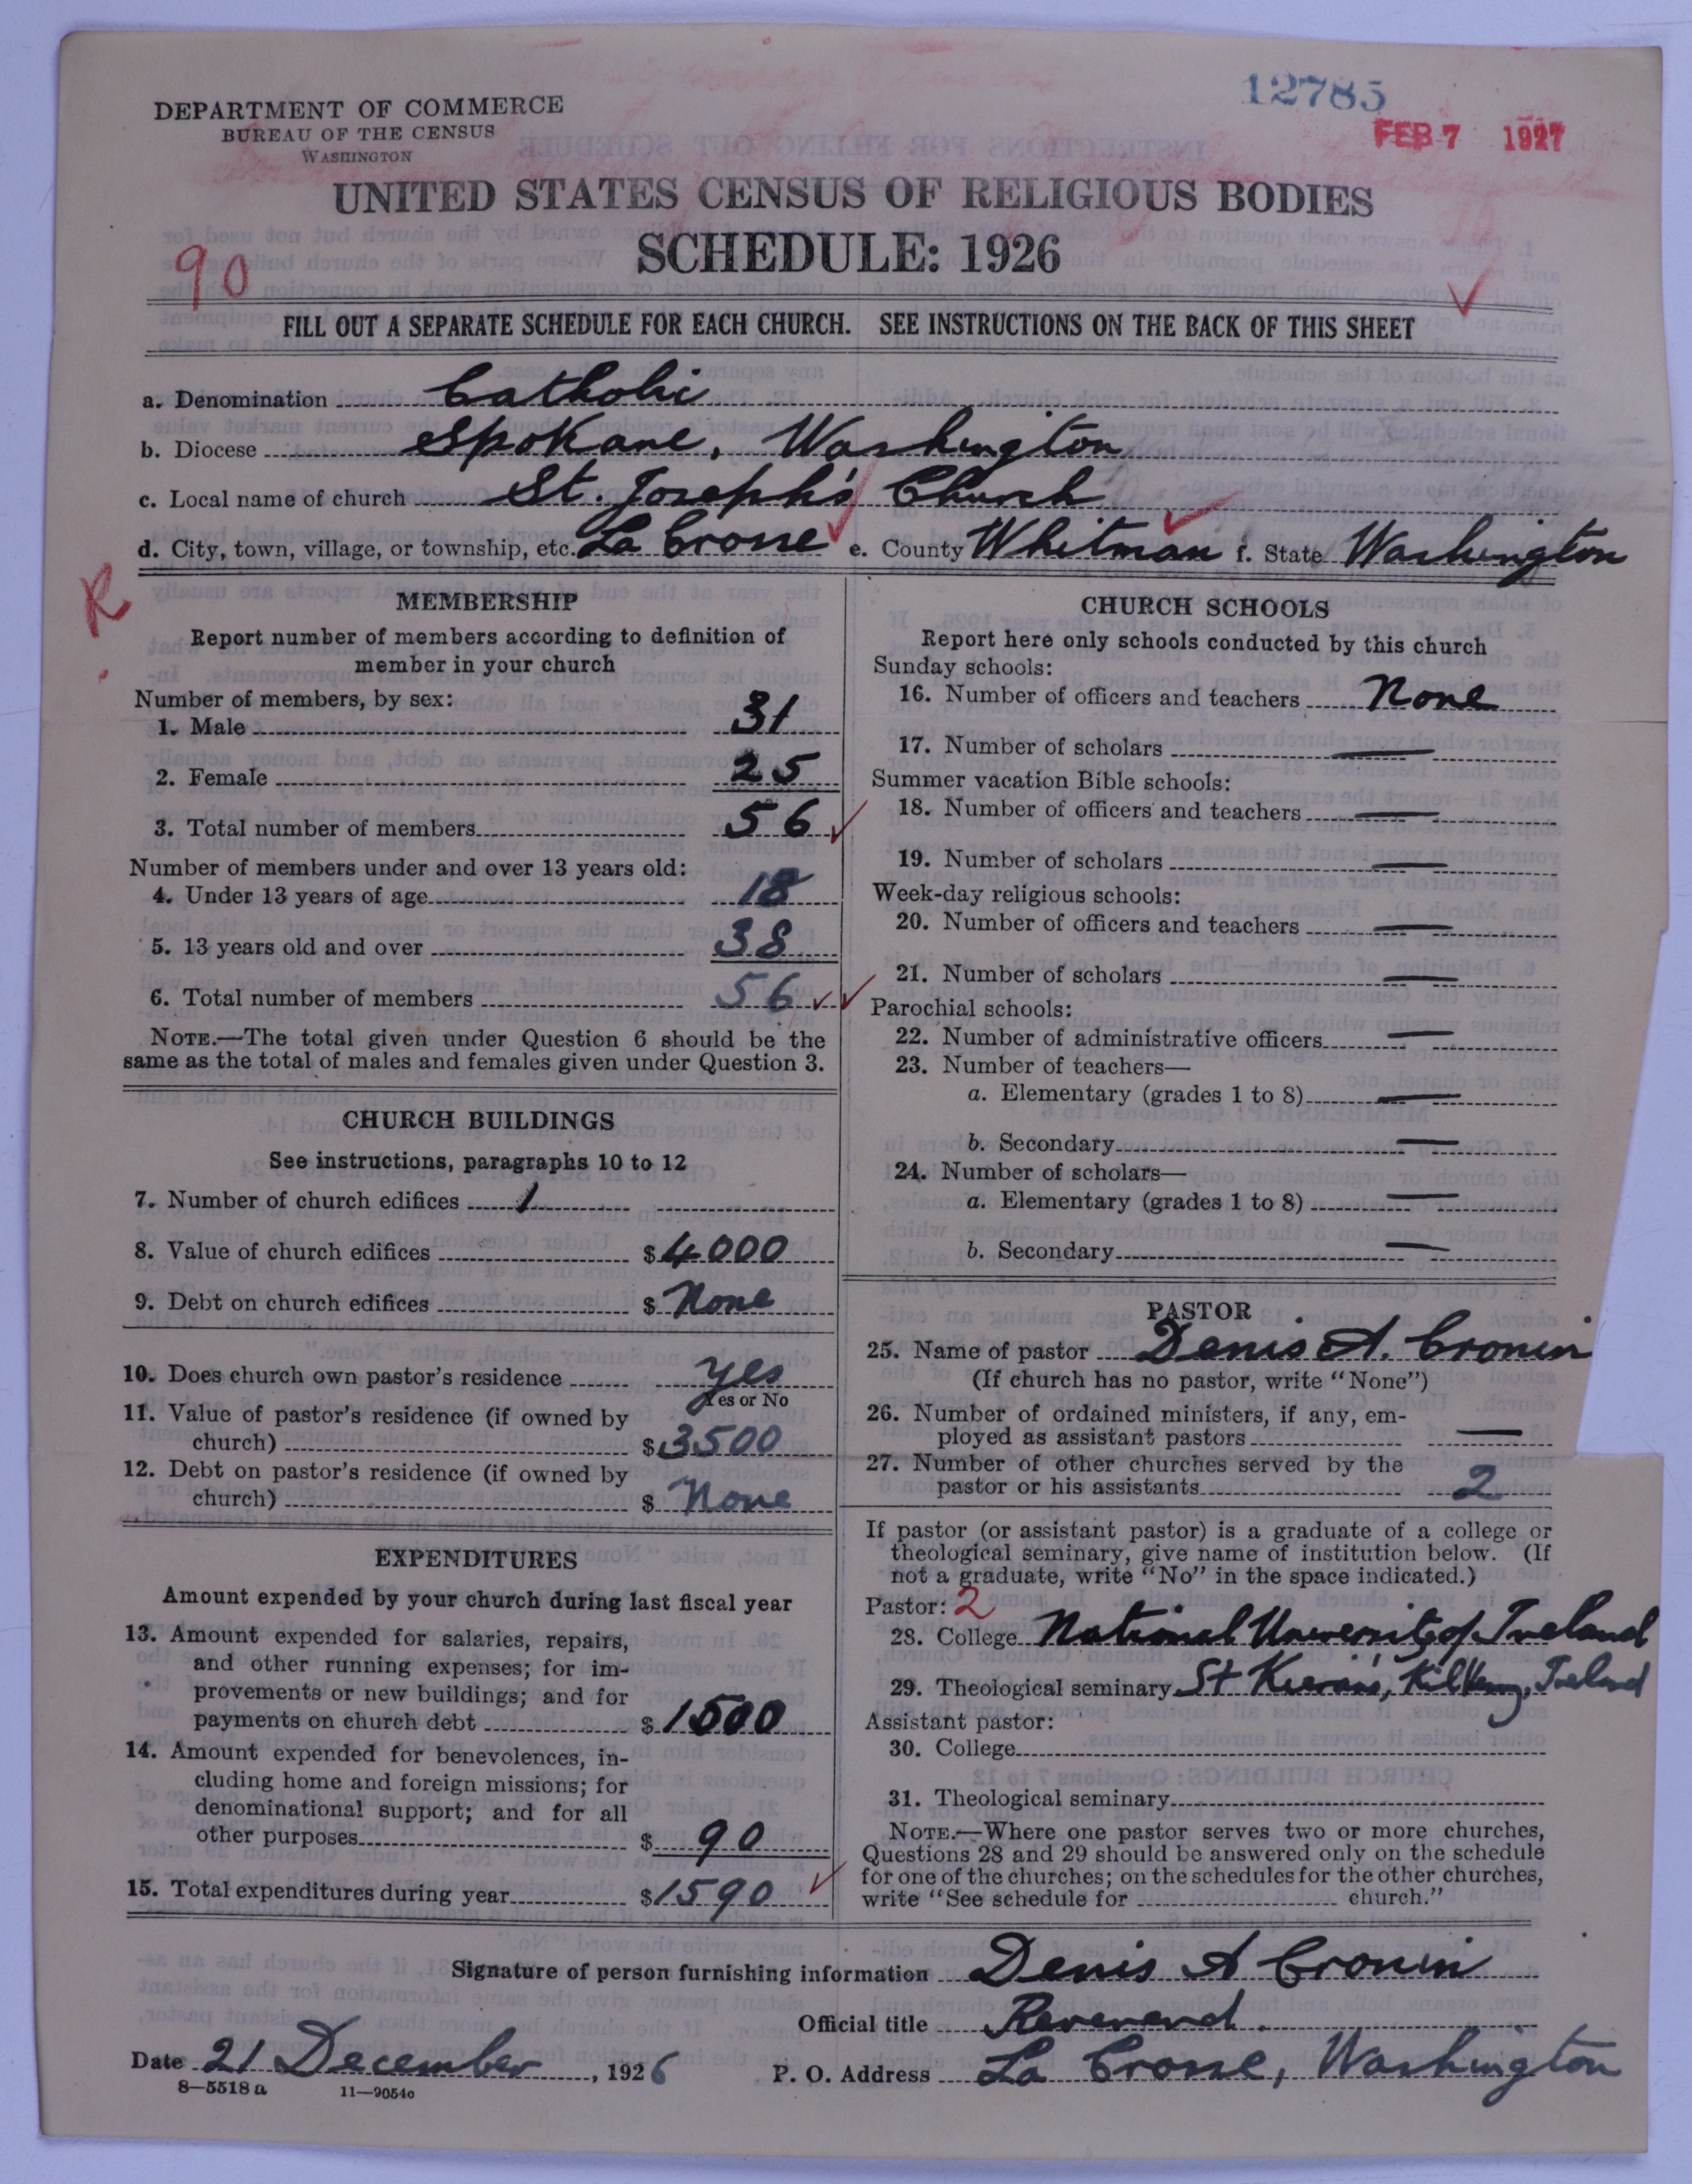 12785
FEB 7 1927
DEPARTMENT OF COMMERCE
BUREAU OF THE CENSUS
WASHINGTON
UNITED STATES CENSUS OF RELIGIOUS BODIES
SCHEDULE: 1926
90
FILL OUT A SEPARATE SCHEDULE FOR EACH CHURCH. SEE INSTRUCTIONS ON THE BACK OF THIS SHEET
a. Denomination Catholic
b. Diocese Spokane, Washington
c. Local name of church St. Joseph's Church
d. City, town, village, or township, etc. La Crosse e. County Whitman f. State Washington
R
MEMBERSHIP
Report number of members according to definition of
member in your church
Number of members, by sex:
1. Male 31
2. Female 25
3. Total number of members 56
Number of members under and over 13 years old:
4. Under 13 years of age 18
5. 13 years old and over 38
6. Total number of members 56
NOTE.—The total given under Question 6 should be the
same as the total of males and females given under Question 3.
CHURCH BUILDINGS
See instructions, paragraphs 10 to 12
7. Number of church edifices 1
8. Value of church edifices $ 4000
9. Debt on church edifices $ None
10. Does church own pastor's residence yes
Yes or No
11. Value of pastor's residence (if owned by
church) $ 3500
12. Debt on pastor's residence (if owned by
church) $ None
EXPENDITURES
Amount expended by your church during last fiscal year
13. Amount expended for salaries, repairs,
and other running expenses; for im-
provements or new buildings; and for
payments on church debt $ 1500
14. Amount expended for benevolences, in-
cluding home and foreign missions; for
denominational support; and for all
other purposes $ 90
15. Total expenditures during year $ 1590
CHURCH SCHOOLS
Report here only schools conducted by this church
Sunday schools:
16. Number of officers and teachers None
17. Number of scholars —
Summer vacation Bible schools:
18. Number of officers and teachers —
19. Number of scholars —
Week-day religious schools:
20. Number of officers and teachers —
21. Number of scholars —
Parochial schools:
22. Number of administrative officers —
23. Number of teachers—
a. Elementary (grades 1 to 8) —
b. Secondary —
24. Number of scholars—
a. Elementary (grades 1 to 8) —
b. Secondary —
PASTOR
25. Name of pastor Denis A. Cronin
(If church has no pastor, write "None")
26. Number of ordained ministers, if any, em-
ployed as assistant pastors —
27. Number of other churches served by the
pastor or his assistants 2
If pastor (or assistant pastor) is a graduate of a college or
theological seminary, give name of institution below. (If
not a graduate, write "No" in the space indicated.)
Pastor: 2
28. College National University of Ireland
29. Theological seminary St Kieran's, Kilkenny, Ireland
Assistant pastor:
30. College
31. Theological seminary
NOTE.—Where one pastor serves two or more churches,
Questions 28 and 29 should be answered only on the schedule
for one of the churches; on the schedules for the other churches,
write "See schedule for church."
Signature of person furnishing information Denis A Cronin
Official title Reverend.
Date 21 December, 1926 P. O. Address La Crosse, Washington
8—5518 a 11—9054c